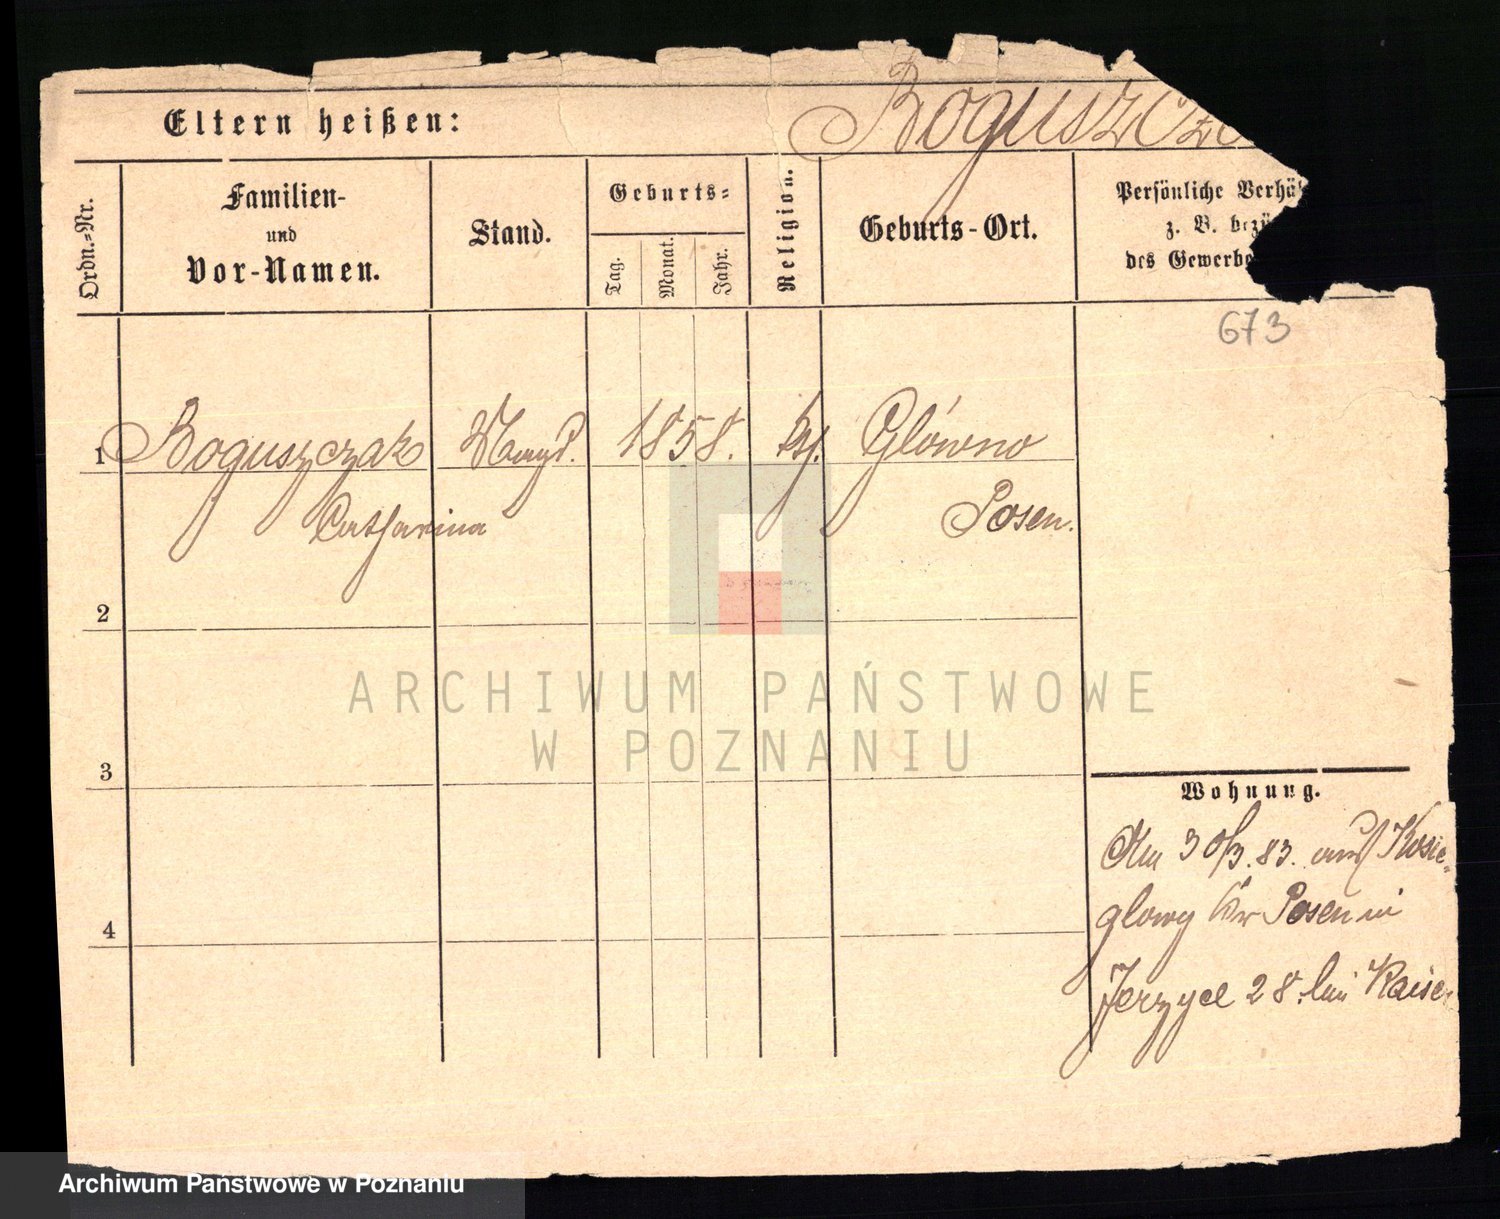 Boguszcz
Eltern heißen:
Ordn.-Nr.
Familien-
und
Vor-Namen.
Stand.
Geburts-
Tag.
Monat.
Jahr.
Religion.
Geburts-Ort.
Persönliche Verhä
z. B. bezü
des Gewerbe
673
1 Boguszczak Magd. 1858. ktj. Główno
Catharina Posen.
2
3
4
Wohnung.
Am 30/3. 83. aus Kozie-
glowy Kr Posen in
Jerzyce 28. bei Kaiser
ARCHIWUM PAŃSTWOWE
W POZNANIU
Archiwum Państwowe w Poznaniu